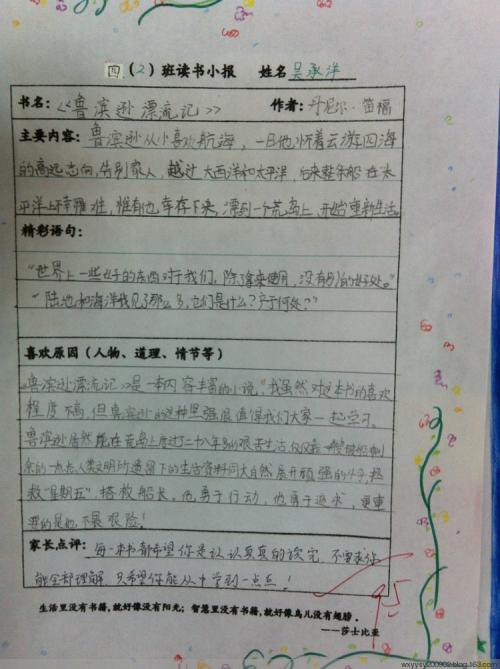 四（2）班读书小报 姓名 吴承洋
书名：《鲁滨逊漂流记》 作者：丹尼尔·笛福
主要内容：鲁滨逊从小喜欢航海，一日他怀着云游四海
的高远志向，告别家人，越过大西洋和太平洋，后来整条船在太
平洋上不幸罹难，惟有他幸存下来，漂到一个荒岛上，开始重新生活。
精彩语句：
“世界上一些好的东西对于我们，除了拿来使用，没有别的好处。”
“陆地和海洋我见了那么多，它们是什么？产于何处？”
喜欢原因（人物、道理、情节等）
《鲁滨逊漂流记》是一本内容丰富的小说，我虽然对这本书的喜欢
程度不高，但鲁滨逊的这种坚强很值得我们大家一起学习。
鲁滨逊居然能在荒岛上度过二十八年多的艰苦生活，仅仅靠一艘破船剩
余的一点点人类文明所遗留下的生活资料同大自然展开顽强的斗争，拯
救“星期五”，拯救船长。他勇于行动，他勇于追求，更重
要的是他不畏艰险！
家长点评：每一本书都希望你是认认真真的读完，不要求你
能全部理解，只希望你能从中学到一点点！
95
生活里没有书籍，就好像没有阳光；智慧里没有书籍，就好像鸟儿没有翅膀。
——莎士比亚
wxyysy200902.blog.163.com